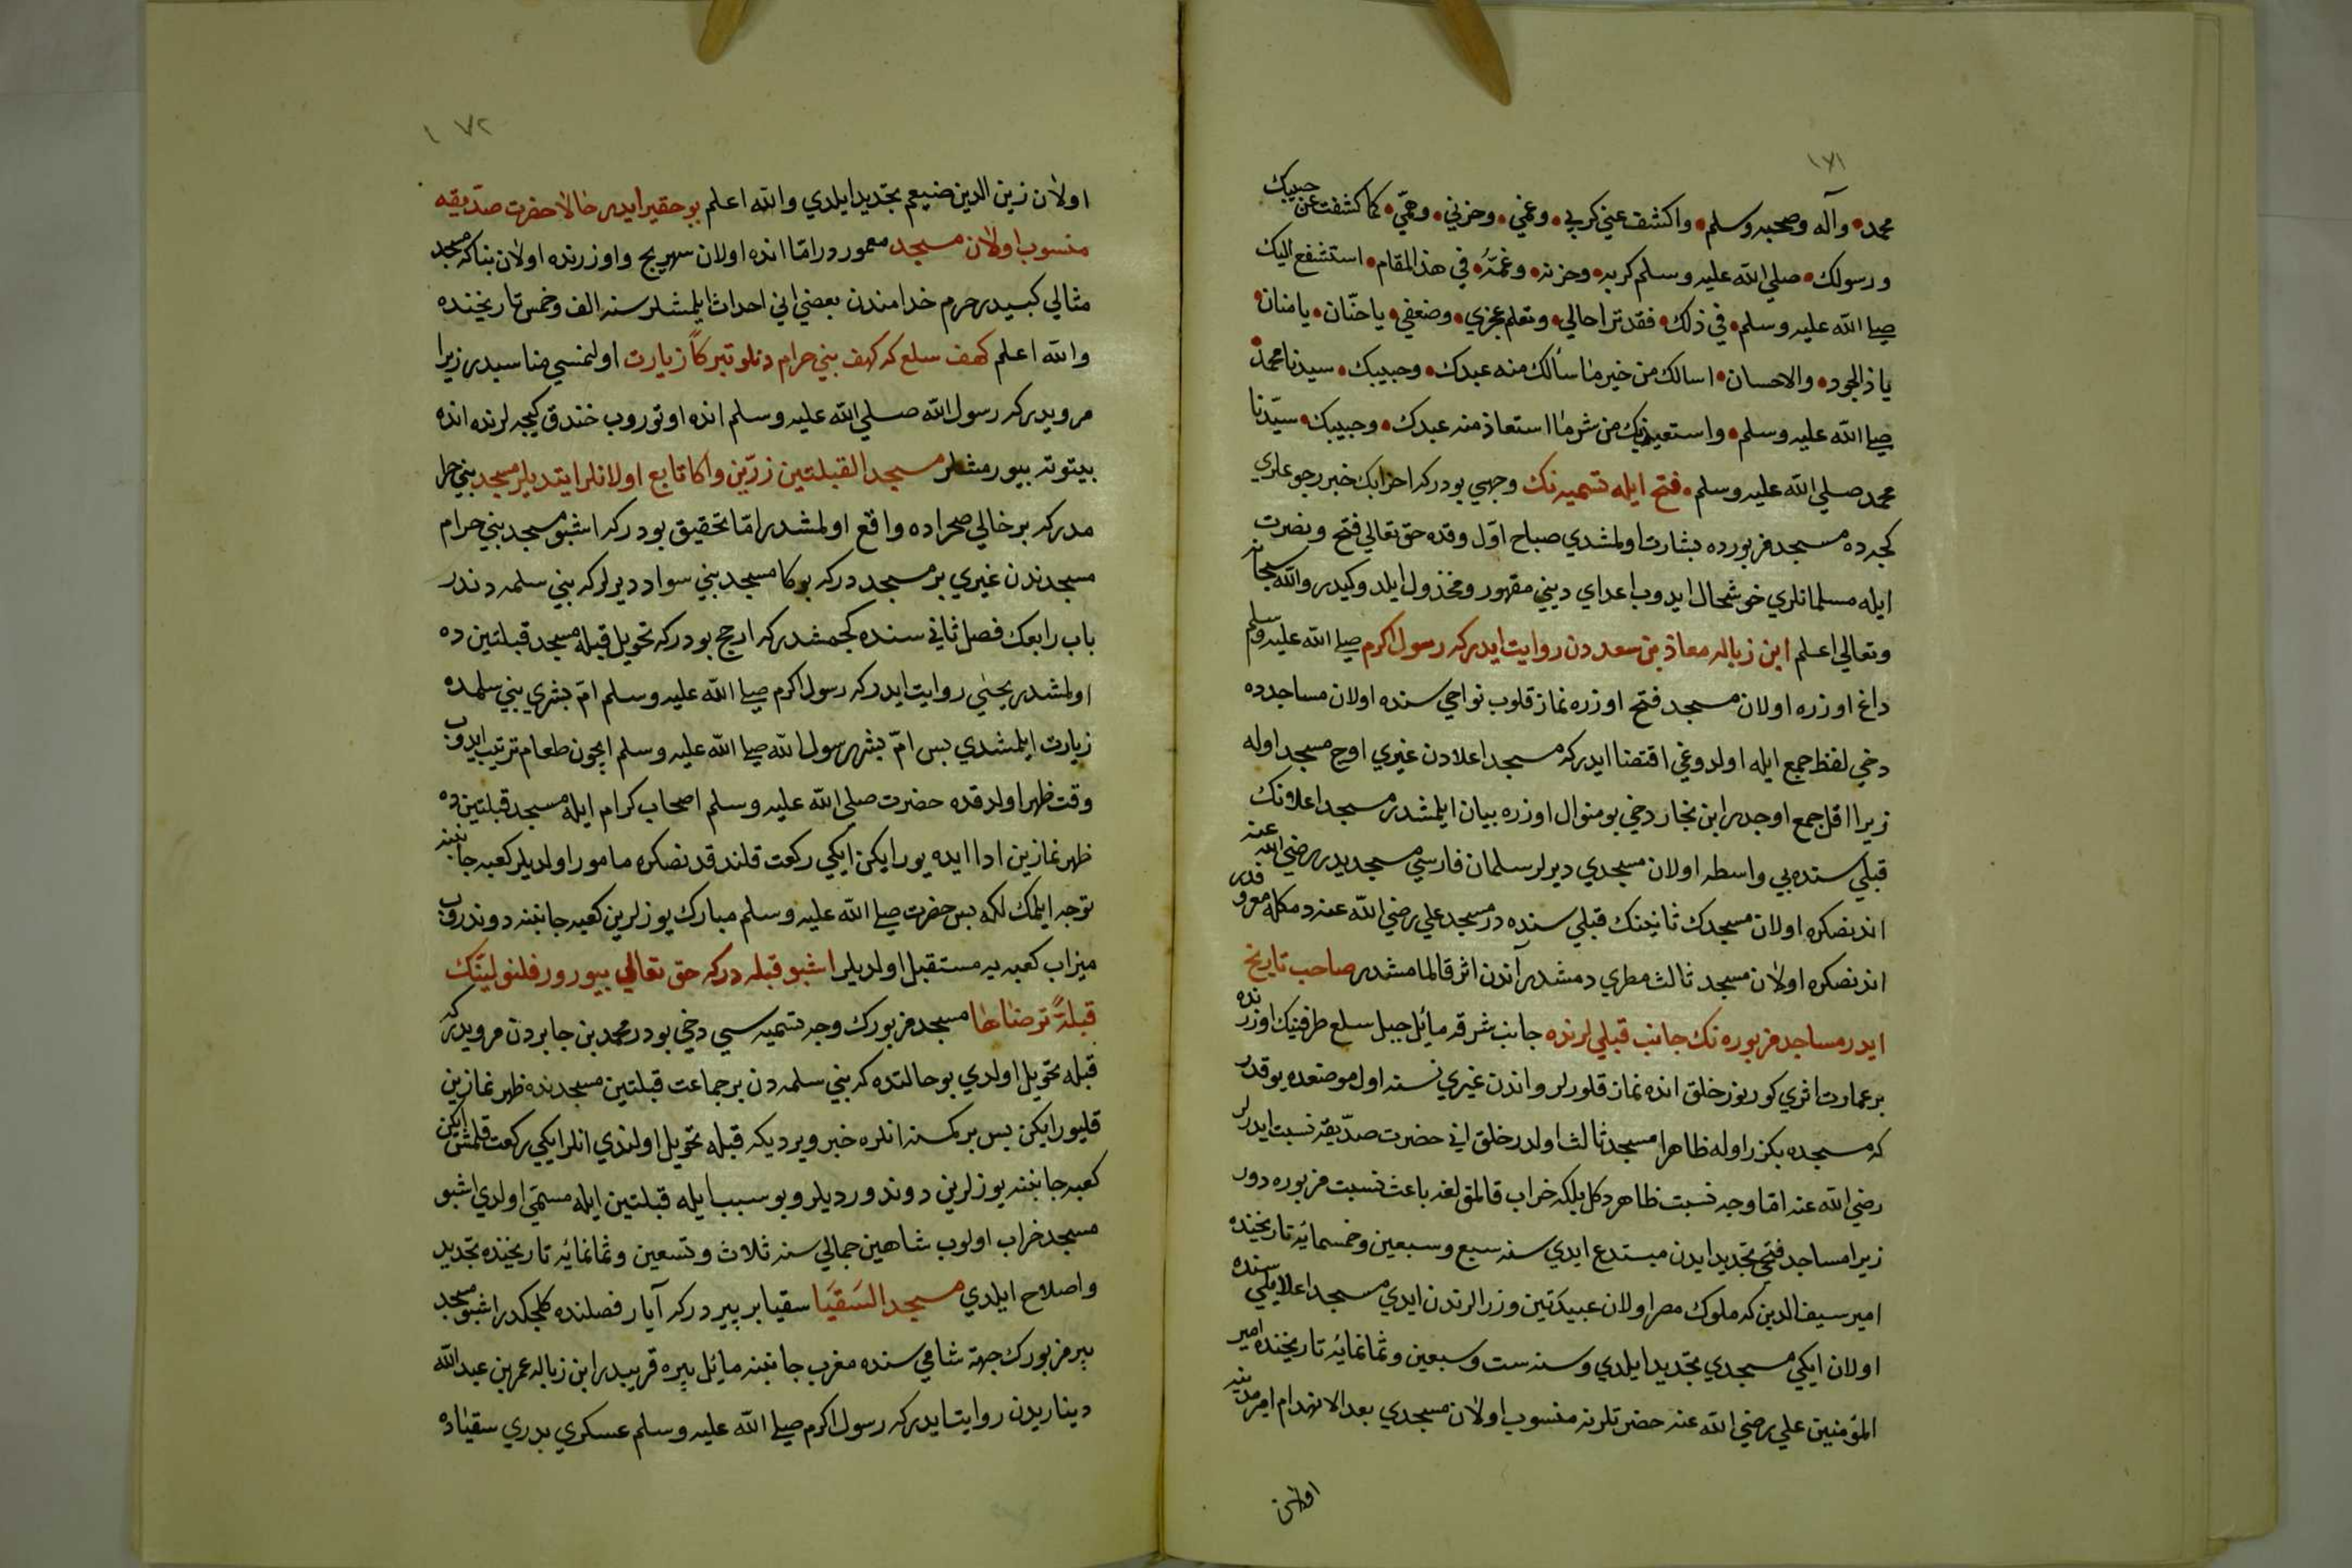 ١٧١
محمد • وآله وصحبه وسلم • واكشف عني كربي • وغمي • وحزني • وهمّي • كما كشفت عن حبيبك
ورسولك • صلي الله عليه وسلم كربه • وحزنه • وغمّهُ • في هذا المقام • استشفع اليك
صلي الله عليه وسلم • في ذلك • فقد ترا حالي • وتعلم عجزي • وضعفي • يا حنّان • يا منان •
يا ذا الجود • والاحسان • اسالك من خير ما سألك منه عبدك • وحبيبك • سيدنا محمد •
صلي الله عليه وسلم • واستعيذ بك من شر ما استعاذ منه عبدك • وحبيبك • سيّدنا
محمد صلي الله عليه وسلم • فتح ايله تسميه نك وجهي بودركه احزابك خبر رجوعلري
كجه ده مسجد مزبورده بشارت اولمشدي صباح اوّل وقده حق تعالي فتح ونصرت
ايله مسلمانلري خوشحال ايدوب اعداي ديني مقهور ومخذول ايلدوكيدر والله سبحانه
وتعالي اعلم ابن زباله معاذ بن سعد دن روايت ايدركه رسول اكرم صلي الله عليه وسلم
داغ اوزره اولان مسجد فتح اوزره نماز قلوب نواحي سنده اولان مساجدده
دخي لفظ جمع ايله اولدوغي اقتضا ايدركه مسجد اعلادن غيري اوح مسجد اوله
زيرا اقل جمع اوجدر ابن نجار دخي بو منوال اوزره بيان ايلمشدر مسجد اعلانك
قبلي سنده بي واسطه اولان مسجدي ديرلر سلمان فارسي مسجديدر رضي الله عنه
اندنصكره اولان مسجدك ثانينك قبلي سنده در مسجد علي رضي الله عنه دمكله معروفدر
اندنصكره اولان مسجد ثالث مطري دمشدر آندن اثر قالمامشدر صاحب تاريخ
ايدر مساجد مزبوره نك جانب قبلي لرنده جانب شرقه مائل جبل سلع طرفينك اوزرنده
بر عمارت اثري كورينور خلق انده نماز قلورلر واندن غيري نسنه اول موضعده يوقدر
كه مسجده بكزر اوله ظاهرا مسجد ثالث اولدر خلق اني حضرت صدّيقه نسبت ايدرلر
رضي الله عنه امّا وجه نسبت ظاهر دكل بلكه خراب قالمقلغنه باعث نسبت مزبوره دور
زيرا مساجد فتحي تجديد ايدن مبتدع ايدي سنه سبع وسبعين وخمسمائه تاريخنده
امير سيف الدين كه ملوك مصر اولان عبيديين وزرالرندن ايدي مسجد اعلا يلي سنده
اولان ايكي مسجدي تجديد ايلدي وسنه ست وسبعين وثمانمائه تاريخنده امير
المؤمنين علي رضي الله عنه حضرتلرنه منسوب اولان مسجدي بعد الانهدام امير مدينه
اولان
١٧٢
اولان زين الدين ضيغم تجديد ايلدي والله اعلم بو حقير ايدر حالا حضرت صدّيقه
منسوب اولان مسجد معموردر امّا انده اولان سهريج واوزرنده اولان بناكه مسجد
مثالي كبيدر حرم خدامندن بعضي اني احداث ايلمشلر سنه الف وخمس تاريخنده
والله اعلم كهف سلع كه كهف بني حرام دنلو تبركاً زيارت اولنمسي مناسبدر زيرا
مرويدركه رسول الله صلي الله عليه وسلم انده اوتوروب خندق كيجه لرنده انده
بيتوته بيورمشلر مسجد القبلتين زرّين واكا تابع اولانلر ايتديلر مسجد بني حرا
مدركه بر خالي صحراده واقع اولمشدر امّا تحقيق بودركه اشبو مسجد بني حرام
مسجدندن غيري بر مسجددركه بوكا مسجد بني سواد ديرلركه بني سلمه دندر
باب رابعك فصل ثاني سنده كجمشدركه ارجح بودركه تحويل قبله مسجد قبلتين ده
اولمشدر يحيي روايت ايدركه رسول اكرم صلي الله عليه وسلم امّ بشري بني سلمده
زيارت ايلمشدي بس امّ بشر رسول الله صلي الله عليه وسلم ايچون طعام ترتيب ايدوب
وقت ظهر اولدقده حضرت صلي الله عليه وسلم اصحاب كرام ايله مسجد قبلتين ده
ظهر نمازين ادا ايده يورايكن ايكي ركعت قلندقدنصكره مامور اولديلر كعبه جانبنه
توجه ايلمكلكه بس حضرت صلي الله عليه وسلم مبارك يوزلرين كعبه جانبنه دوندروب
ميزاب كعبه يه مستقبل اولديلر اشبو قبله دركه حق تعالي بيورور فلنولينك
قبلةً ترضاها مسجد مزبورك وجه تسميه سي دخي بودر محمد بن جابردن مرويدركه
قبله تحويل اولدي بو حالتده كه بني سلمه دن بر جماعت قبلتين مسجدنده ظهر نمازين
قليورايكن بس بر كسنه انلره خبر ويرديكه قبله تحويل اولندي انلر ايكي ركعت قلمش ايكن
كعبه جانبنه يوزلرين دوندورديلر وبو سبب ايله قبلتين ايله مسمّي اولدي اشبو
مسجد خراب اولوب شاهين جمالي سنه ثلاث وتسعين وثمانمائه تاريخنده تجديد
واصلاح ايلدي مسجد السَقيَا سقيا بر بيردركه آبار فصلنده كلجكدر اشبو مسجد
بير مزبورك جهة شامي سنده مغرب جانبنه مائل بيره قريبدر ابن زباله عمر بن عبد الله
ديناريدن روايت ايدركه رسول اكرم صلي الله عليه وسلم عسكري بدري سقياده